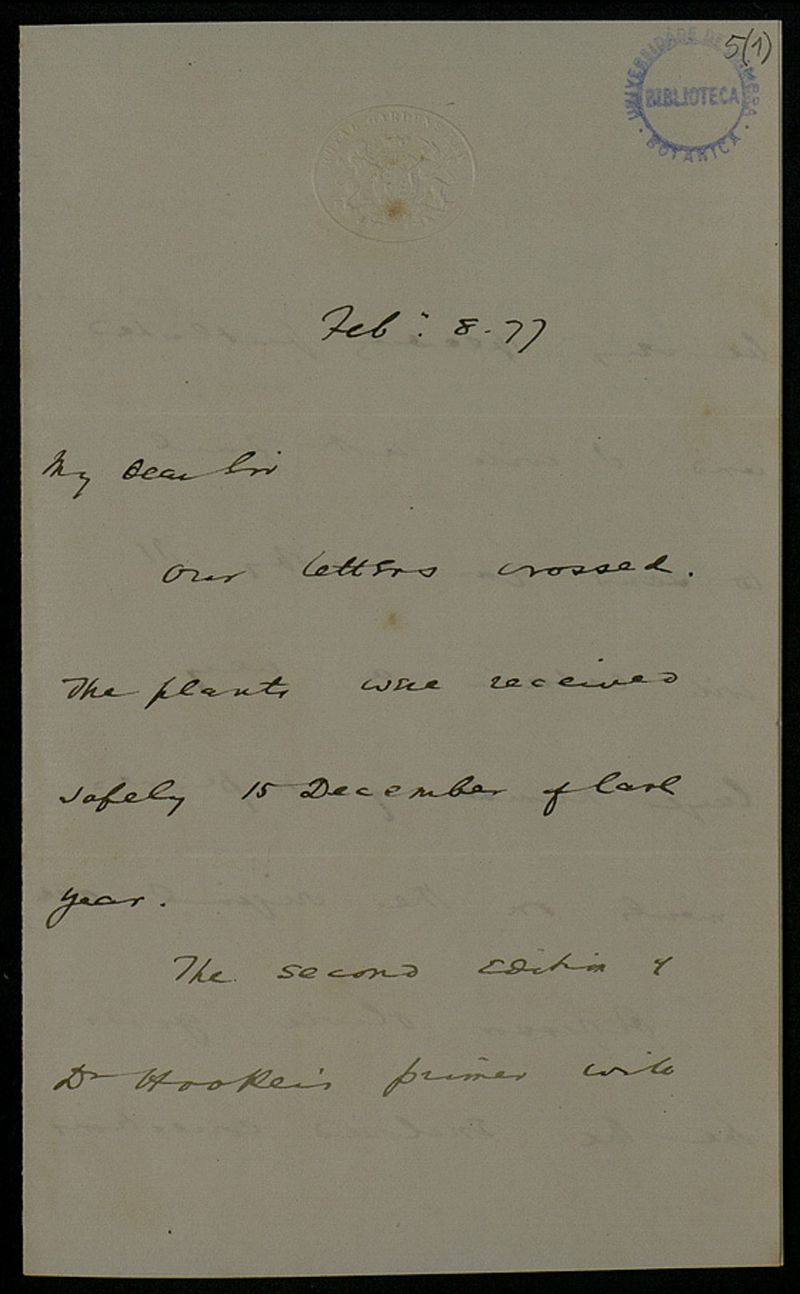 5(1)
UNIVERSIDADE DE COIMBRA
BIBLIOTECA
· BOTANICA ·
ROYAL GARDENS KEW
Feby. 8. 77
My dear Sir
Our letters crossed.
The plants were received
safely 15 December of last
year.
The second edition of
Dr Hooker's primer will